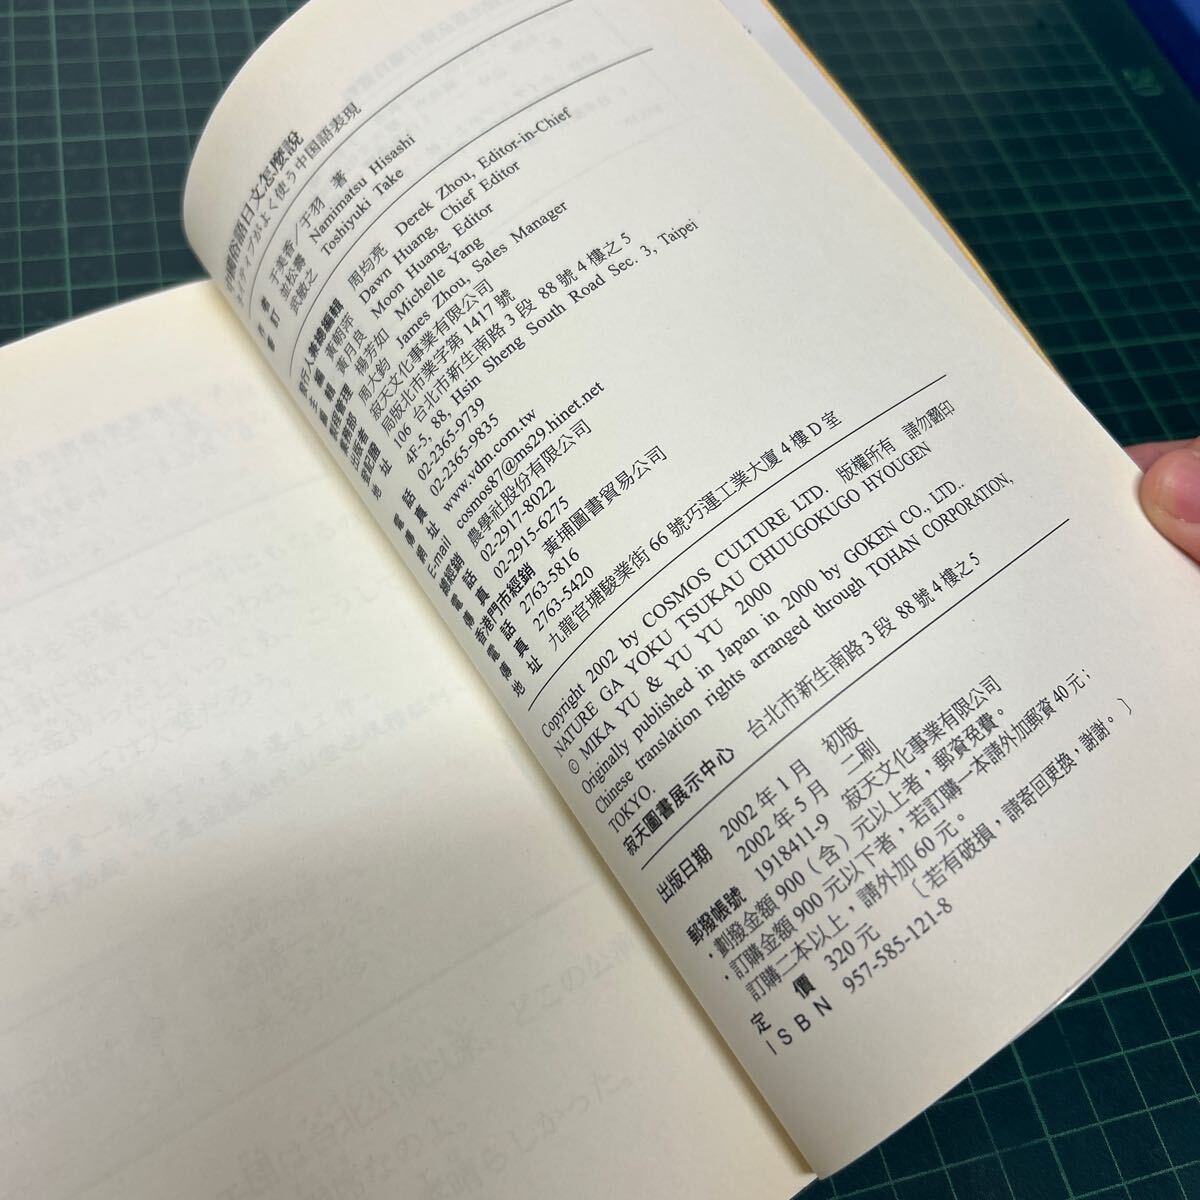 中國俗語日文怎麼說
ネイティブがよく使う中国語表現
著者 于美香／于羽 著
並松壽 Namimatsu Hisashi
武敏之 Toshiyuki Take
發行人兼總編輯 周均亮 Derek Zhou, Editor-in-Chief
主編 黃朝萍 Dawn Huang, Chief Editor
編輯 黃月良 Moon Huang, Editor
楊芳如 Michelle Yang
周大鈞 James Zhou, Sales Manager
出版者 寂天文化事業有限公司
登記證 局版北市業字第 1417 號
地址 106 台北市新生南路 3 段 88 號 4 樓之 5
4F-5, 88, Hsin Sheng South Road Sec. 3, Taipei
電話 02-2365-9739
傳真 02-2365-9835
網址 www.vdm.com.tw
E-mail cosmos87@ms29.hinet.net
總經銷 農學社股份有限公司
電話 02-2917-8022
傳真 02-2915-6275
香港門市經銷 黃埔圖書貿易公司
電話 2763-5816
傳真 2763-5420
地址 九龍官塘駿業街 66 號巧運工業大廈 4 樓 D 室
Copyright 2002 by COSMOS CULTURE LTD. 版權所有 請勿翻印
NATURE GA YOKU TSUKAU CHUUGOKUGO HYOUGEN
© MIKA YU & YU YU 2000
Originally published in Japan in 2000 by GOKEN CO., LTD..
Chinese translation rights arranged through TOHAN CORPORATION,
TOKYO.
寂天圖書展示中心 台北市新生南路 3 段 88 號 4 樓之 5
出版日期 2002 年 1 月 初版
2002 年 5 月 二刷
郵撥帳號 1918411-9 寂天文化事業有限公司
・劃撥金額 900（含）元以上者，郵資免費。
・訂購金額 900 元以下者，若訂購一本請外加郵資 40 元；
訂購二本以上，請外加 60 元。
定價 320 元 〔若有破損，請寄回更換，謝謝。〕
ISBN 957-585-121-8